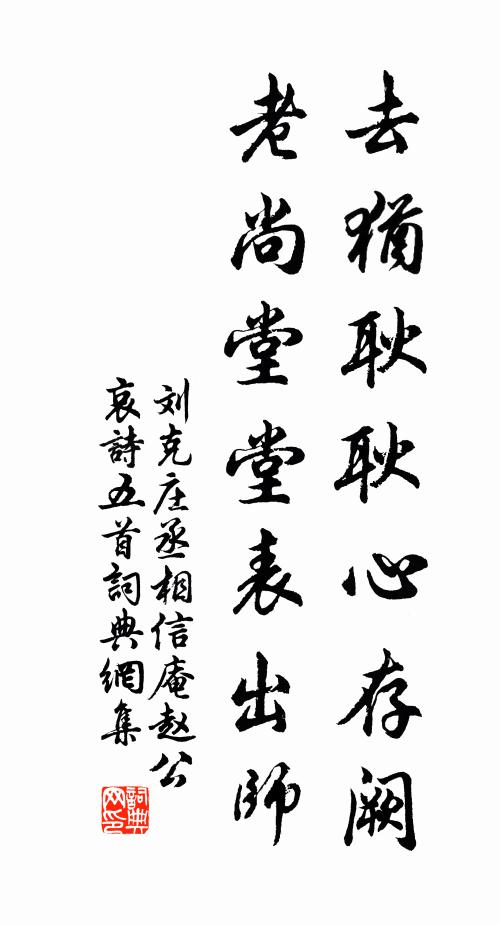 去猶耿耿心存阙
老尚堂堂表出師
刘克庄丞相信庵赵公
哀詩五首詞典網集
詞典
网印